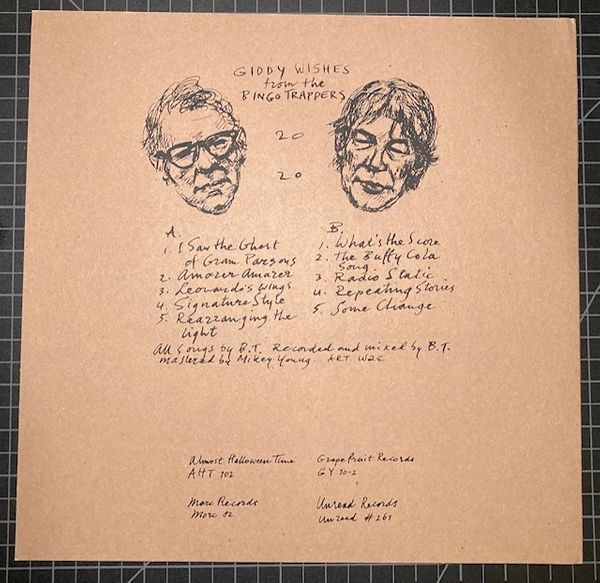 GIDDY WISHES
from the
BINGO TRAPPERS
20
20
A.
1. I Saw the Ghost
of Gram Parsons
2. Amozer Amazer
3. Leonardo's Wings
4. Signature Style
5. Rearranging the
Light
B.
1. What's the Score
2. The Buffy Cola
Song
3. Radio Static
4. Repeating Stories
5. Some Change
All songs by B.T. Recorded and mixed by B.T.
mastered by Mikey Young. ART.
Almost Halloween Time
AHT 102
Grapefruit Records
GY 10-2
Morc Records
Morc 82
Unread Records
Unread #261